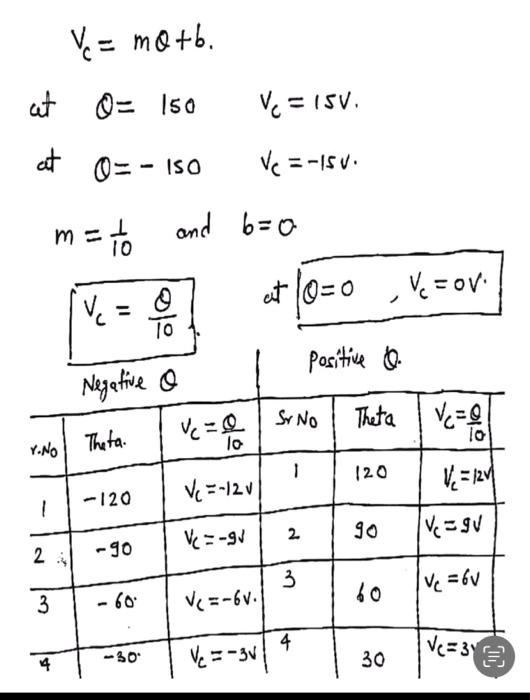 V_c = mθ+b.
at θ= 150 V_c = 15V.
at θ= - 150 V_c = -15V.
m = 1/10 and b=0
V_c = θ/10 at θ=0 , V_c = 0V.
Negative θ Positive θ.
r.No Theta. V_c = θ/10 Sr No Theta V_c = θ/10
1 -120 V_c = -12V 1 120 V_c = 12V
2 -90 V_c = -9V 2 90 V_c = 9V
3 -60 V_c = -6V. 3 60 V_c = 6V
4 -30 V_c = -3V 4 30 V_c = 3V